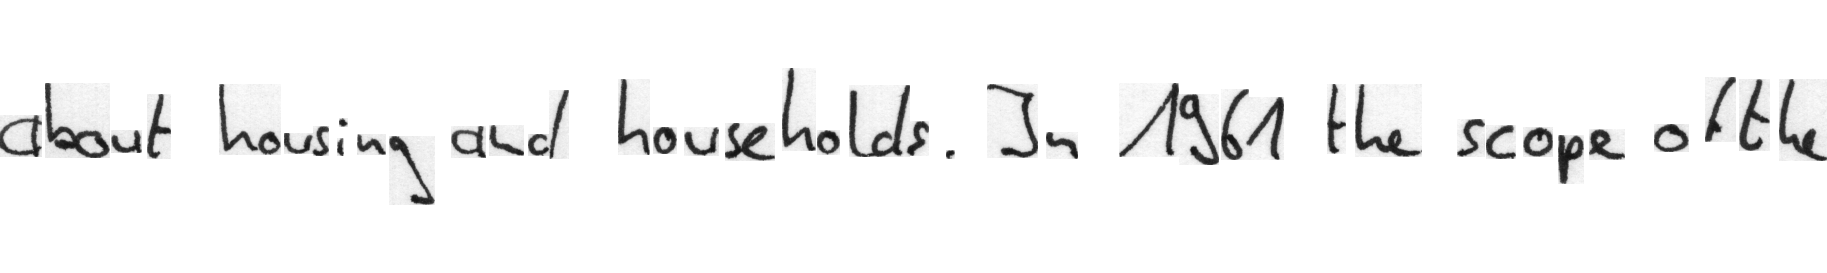 about housing and households. In 1961 the scope of the